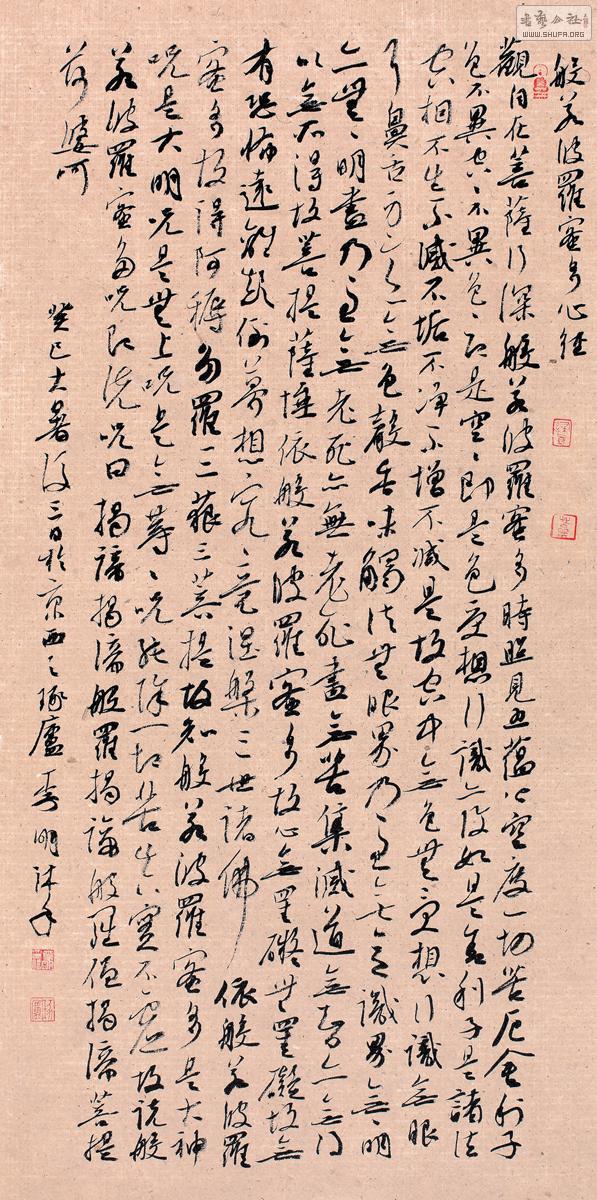 書藝公社
WWW.SHUFA.ORG
般若波羅蜜多心経
觀自在菩薩行深般若波羅蜜多時照見五蘊皆空度一切苦厄舍利子
色不異空々不異色々即是空々即是色受想行識亦復如是舍利子是諸法
空相不生不滅不垢不淨不增不減是故空中無色無受想行識無眼
耳鼻舌身意無色聲香味觸法無眼界乃至無意識界無無明
亦無々明盡乃至無老死亦無老死盡無苦集滅道無智亦無得
以無所得故菩提薩埵依般若波羅蜜多故心無罣礙無罣礙故無
有恐怖遠離顛倒夢想究竟涅槃三世諸佛依般若波羅
蜜多故得阿耨多羅三藐三菩提故知般若波羅蜜多是大神
咒是大明咒是無上咒是無等々咒能除一切苦真實不虛故説般
若波羅蜜多咒即説咒曰揭諦揭諦般羅揭諦般羅僧揭諦菩提
莎婆呵
癸巳大暑後三日於京西之琢廬李明沐手